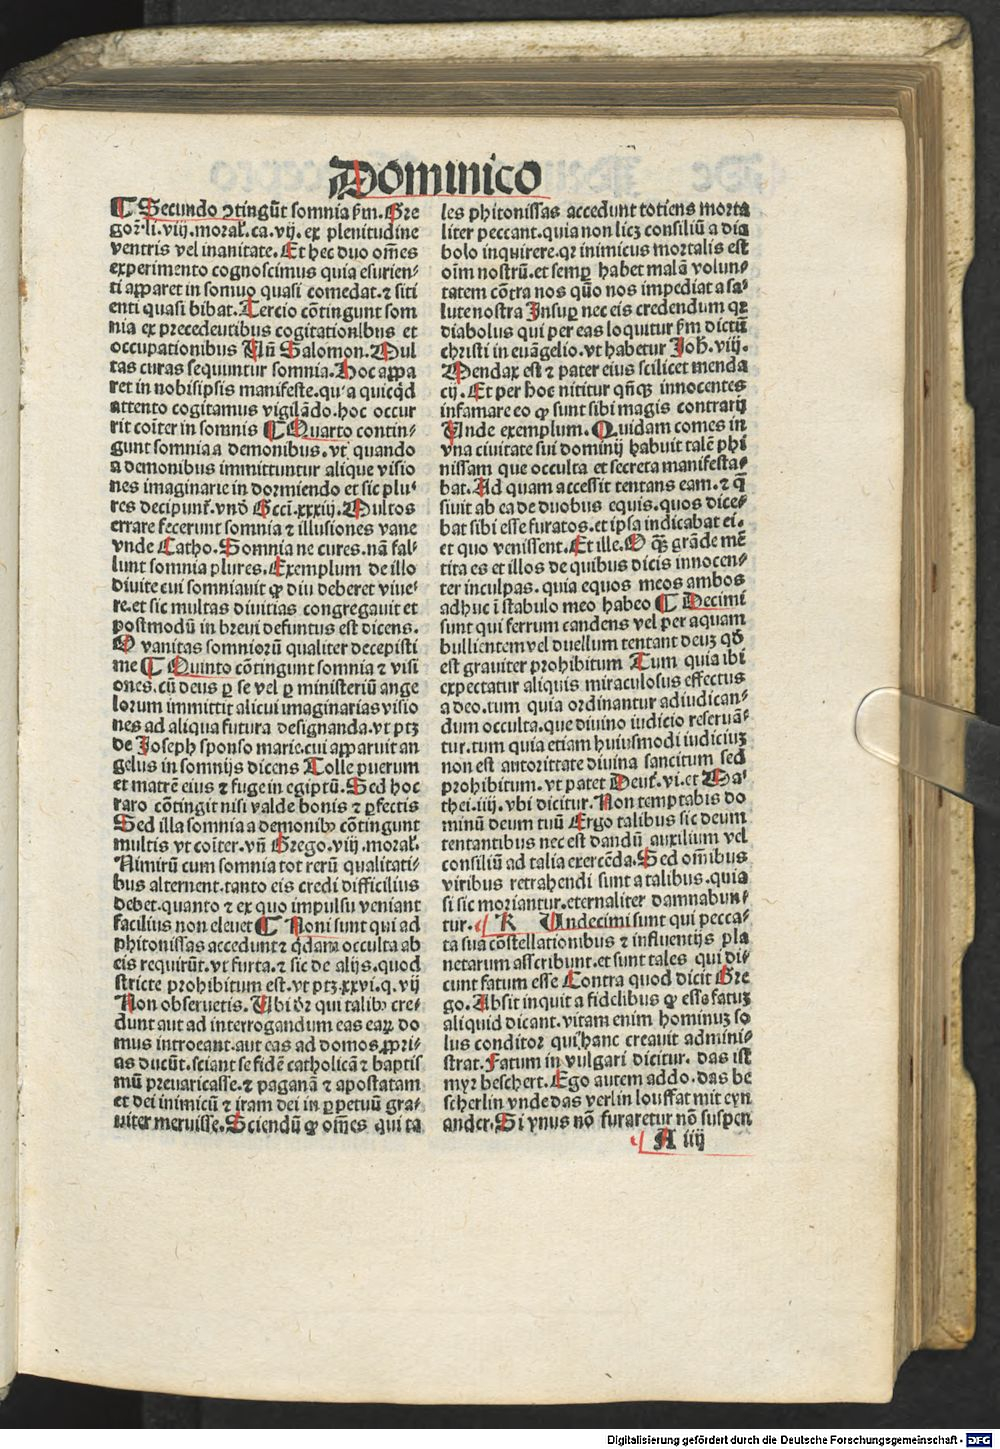 Dominico
¶ Secundo ꝯtingūt somnia ẜm. Gre
gor̄. li. viij. moraľ. ca. vij. ex plenitudine
ventris vel inanitate. Et hec duo om̄es
experimento cognoscimus quia esurien⸗
ti apparet in somno quasi comedat. ⁊ siti
enti quasi bibat. Tercio cōtingunt som
nia ex precedentibus cogitationibus et
occupationibus Uñ Salomon. Mul
tas curas sequuntur somnia. Hoc appa
ret in nobisipsis manifeste. quia quicq̇d
attento cogitamus vigilādo. hoc occur
rit coīter in somnis ¶ Quarto contin⸗
gunt somnia a demonibus. vt quando
a demonibus immittuntur alique visio
nes imaginarie in dormiendo et sic plu⸗
res decipunť. vnō Ecci. xxxiij. Multos
errare fecerunt somnia ⁊ illusiones vane
vnde Catho. Somnia ne cures. nā fal⸗
lunt somnia plures. Exemplum de illo
diuite cui somniauit ꝙ diu deberet viue⸗
re. et sic multas diuitias congregauit et
postmodū in breui defuntus est dicens.
O vanitas somniorū qualiter decepisti
me ¶ Quinto cōtingunt somnia ⁊ visi
ones. cū deus ꝑ se vel ꝑ ministeriū ange
lorum immittit alicui imaginarias visio
nes ad aliqua futura designanda. vt ptꝫ
de Joseph sponso marie. cui apparuit an
gelus in somnijs dicens Tolle puerum
et matrē eius ⁊ fuge in egiptū. Sed hoc
raro cōtingit nisi valde bonis ⁊ ꝑfectis
Sed illa somnia a demonibꝰ cōtingunt
multis vt coīter. vñ Grego. viij. moraľ.
Nimirū cum somnia tot rerū qualitati⸗
bus alternent. tanto eis credi difficilius
debet. quanto ⁊ ex quo impulsu veniant
facilius non eleuet ¶ Noni sunt qui ad
phitonissas accedunt ⁊ q̇dam occulta ab
eis requirūt. vt furta. ⁊ sic de alijs. quod
stricte prohibitum est. vt ptꝫ. xxvi. q. vij
Non obseruetis. Ubi dr̄ qui talibꝰ cre⸗
dunt aut ad interrogandum eas eaꝝ do
mus introeant. aut eas ad domos ꝓpri⸗
as ducūt. sciant se fidē catholicā ⁊ baptis
mū preuaricasse. ⁊ paganā ⁊ apostatam
et dei inimicū ⁊ iram dei in ꝑpetuū gra⸗
uiter meruisse. Sciendū ꝙ om̄es qui ta
les phitonissas accedunt totiens morta
liter peccant. quia non licꝫ consiliū a dia
bolo inquirere. qꝛ inimicus mortalis est
oīm nostrū. et semꝑ habet malā volun⸗
tatem cōtra nos quō nos impediat a sa⸗
lute nostra Insuꝑ nec eis credendum qꝛ
diabolus qui per eas loquitur ẜm dictū
christi in euāgelio. vt habetur Joħ. viij.
Mendax est ⁊ pater eius scilicet menda
cij. Et per hoc nititur qn̄qꝫ innocentes
infamare eo ꝙ sunt sibi magis contrarij
Unde exemplum. Quidam comes in
vna ciuitate sui dominij habuit talē phi
nissam que occulta et secreta manifesta⸗
bat. Ad quam accessit tentans eam. ⁊ q̄
siuit ab ea de duobus equis. quos dice⸗
bat sibi esse furatos. et ipsa indicabat ei.
et quo venissent. Et ille. O qꝫ grāde mē
tita es et illos de quibus dicis innocen⸗
ter inculpas. quia equos meos ambos
adhuc ī stabulo meo habeo ¶ Decimi
sunt qui ferrum candens vel per aquam
bullientem vel duellum tentant deuꝫ qď
est grauiter prohibitum Tum quia ibi
expectatur aliquis miraculosus effectus
a deo. tum quia ordinantur ad iudican⸗
dum occulta. que diuino iudicio reseruā⸗
tur. tum quia etiam huiusmodi iudiciuꝫ
non est autorittate diuina sancitum sed
prohibitum. vt patet Deuť. vi. et Ma⸗
thei. iiij. vbi dicitur. Non temptabis do
minū deum tuū Ergo talibus sic deum
tentantibus nec est dandū auxilium vel
consiliū ad talia exercēda. Sed om̄ibus
viribus retrahendi sunt a talibus. quia
si sic moriantur. eternaliter damnabun⸗
tur. K Undecimi sunt qui pecca⸗
ta sua cōstellationibus ⁊ influentijs pla
netarum asscribunt. et sunt tales qui di⸗
cunt fatum esse Contra quod dicit Gre
go. Absit inquit a fidelibus ꝙ esse fatuꝫ
aliquid dicant. vitam enim hominuꝫ so
lus conditor qui hanc creauit admini⸗
strat. Fatum in vulgari dicitur. das ist
myr beschert. Ego autem addo. das be
scherlin vnde das verlin louffat mit eyn
ander. Si vnus nō furaretur nō suspen
A iiij
Digitalisierung gefördert durch die Deutsche Forschungsgemeinschaft - DFG